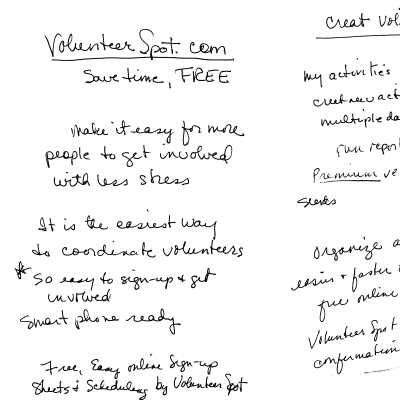 VolunteerSpot.com
Save time, FREE
make it easy for more
people to get involved
with less stress
It is the easiest way
to coordinate volunteers
* So easy to sign-up & get
involved
Smart phone ready
Free, Easy online Sign-up
Sheets & Scheduling by VolunteerSpot
Creat Vol
my activities
creat new acti
multiple da
run report
Premium ve
Organize a
easier + faster
free online
Volunteer Spot
confermation